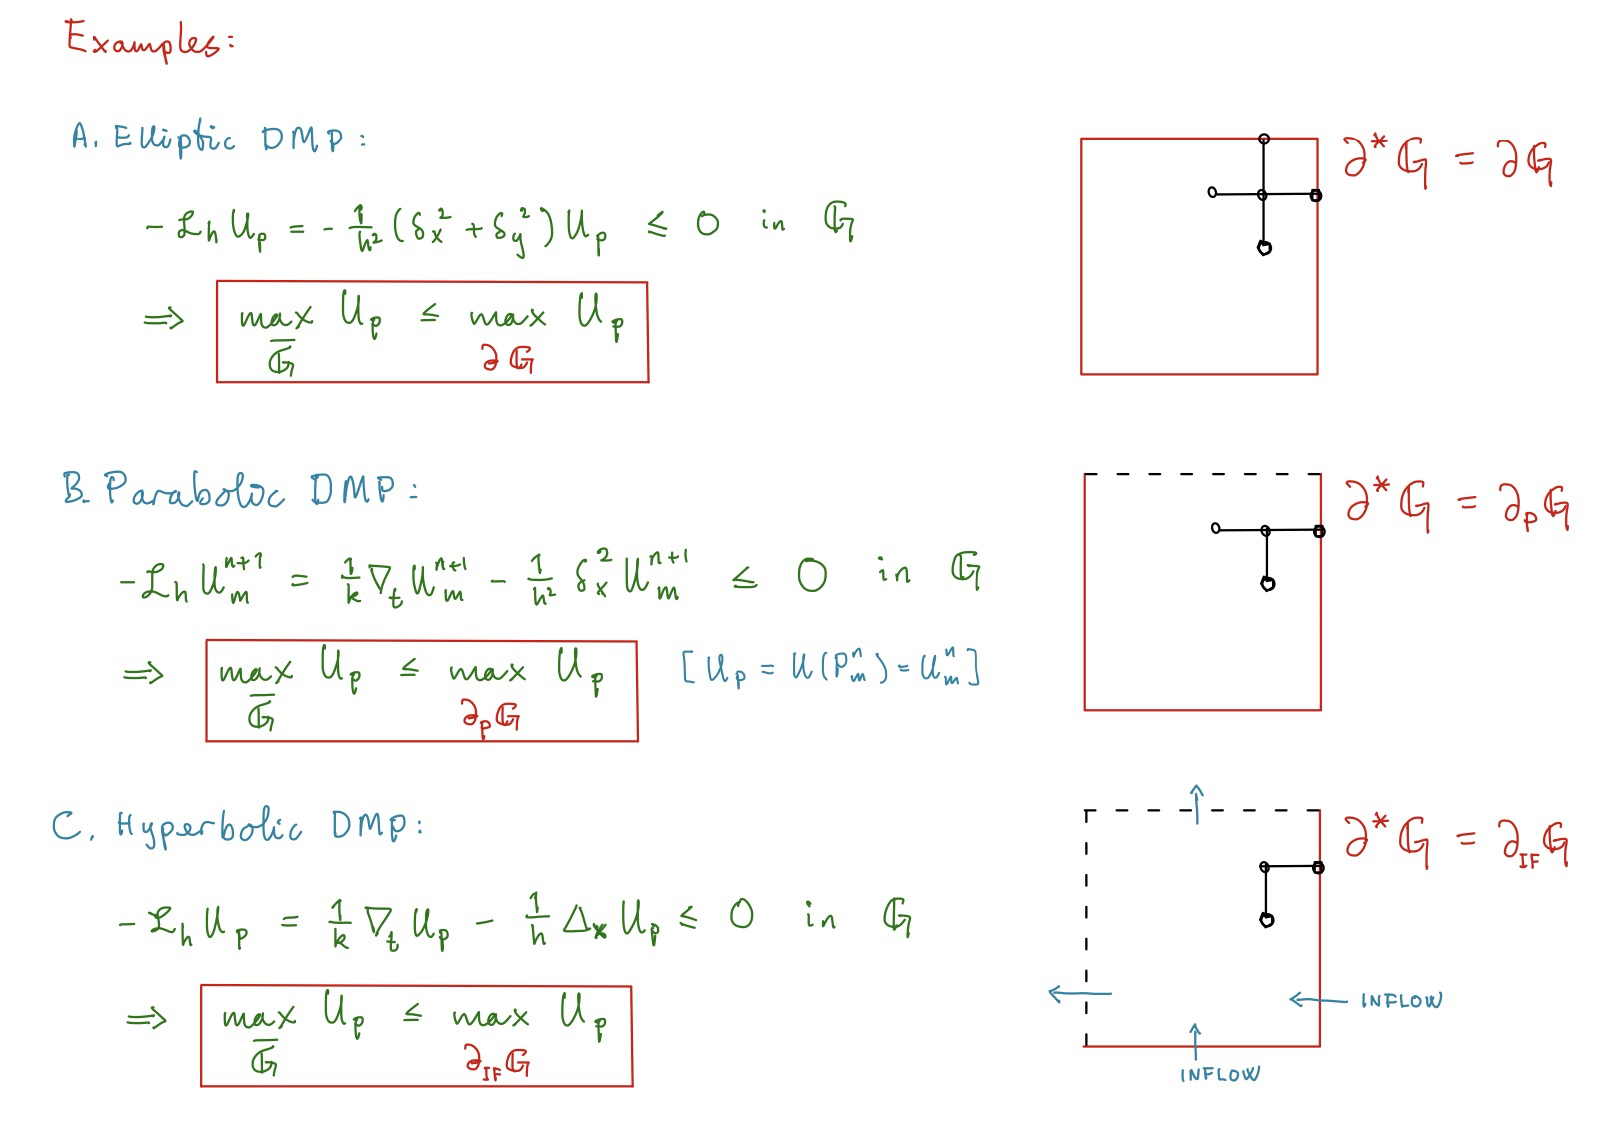 Examples:
A. Elliptic DMP:
∂*𝔾 = ∂𝔾
- ℒ_h U_p = - 1/h² (δ_x² + δ_y²) U_p ≤ 0 in 𝔾
⇒ max_{\overline{𝔾}} U_p ≤ max_{∂𝔾} U_p
B. Parabolic DMP:
∂*𝔾 = ∂_P 𝔾
- ℒ_h U_m^{n+1} = 1/k ∇_t U_m^{n+1} - 1/h² δ_x² U_m^{n+1} ≤ 0 in 𝔾
⇒ max_{\overline{𝔾}} U_p ≤ max_{∂_P 𝔾} U_p [U_p = U(P_m^n) = U_m^n]
C. Hyperbolic DMP:
∂*𝔾 = ∂_{IF} 𝔾
- ℒ_h U_p = 1/k ∇_t U_p - 1/h Δ_x U_p ≤ 0 in 𝔾
INFLOW
⇒ max_{\overline{𝔾}} U_p ≤ max_{∂_{IF} 𝔾} U_p
INFLOW